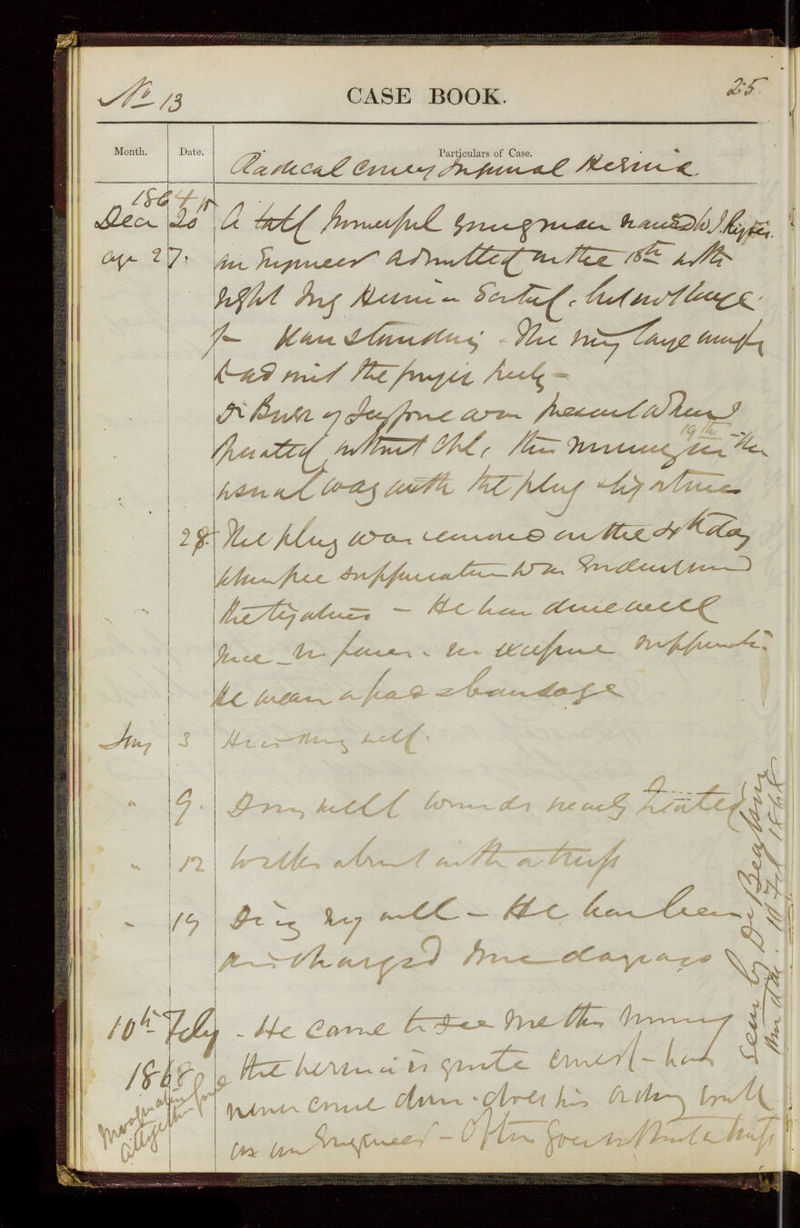 No 13
CASE BOOK.
25
Month.
Date.
Particulars of Case.
Radical cure of Inguinal Hernia.
1864
Decr 20th A tall powerful young man named W J
age 27. an Engineer admitted on the 18th with
right Ing Hernia Scrotal, but not large
standing - The ring large
admit the finger freely -
Dr was present when I
operated without Chl, this morning 19th in the
usual way with the plug & ligatures
28 The plug was removed on the 4th day
when free suppuration was
the ligatures - He has done well
since - no fever - no excessive suppuration
He wears a pad & bandage
Jany 3 He is doing well.
" 9. Doing well wounds nearly healed
" 12 Walks about with a truss
" 19 Doing very well - He has been
discharged some days ago
10th Feby - He came to see me this morning
1868 the hernia is quite cured - has
never come down - does his ordinary work
as an Engineer - Often goes without a truss
altogether gone
Seen by Dr
this day. 10 Feb 1868